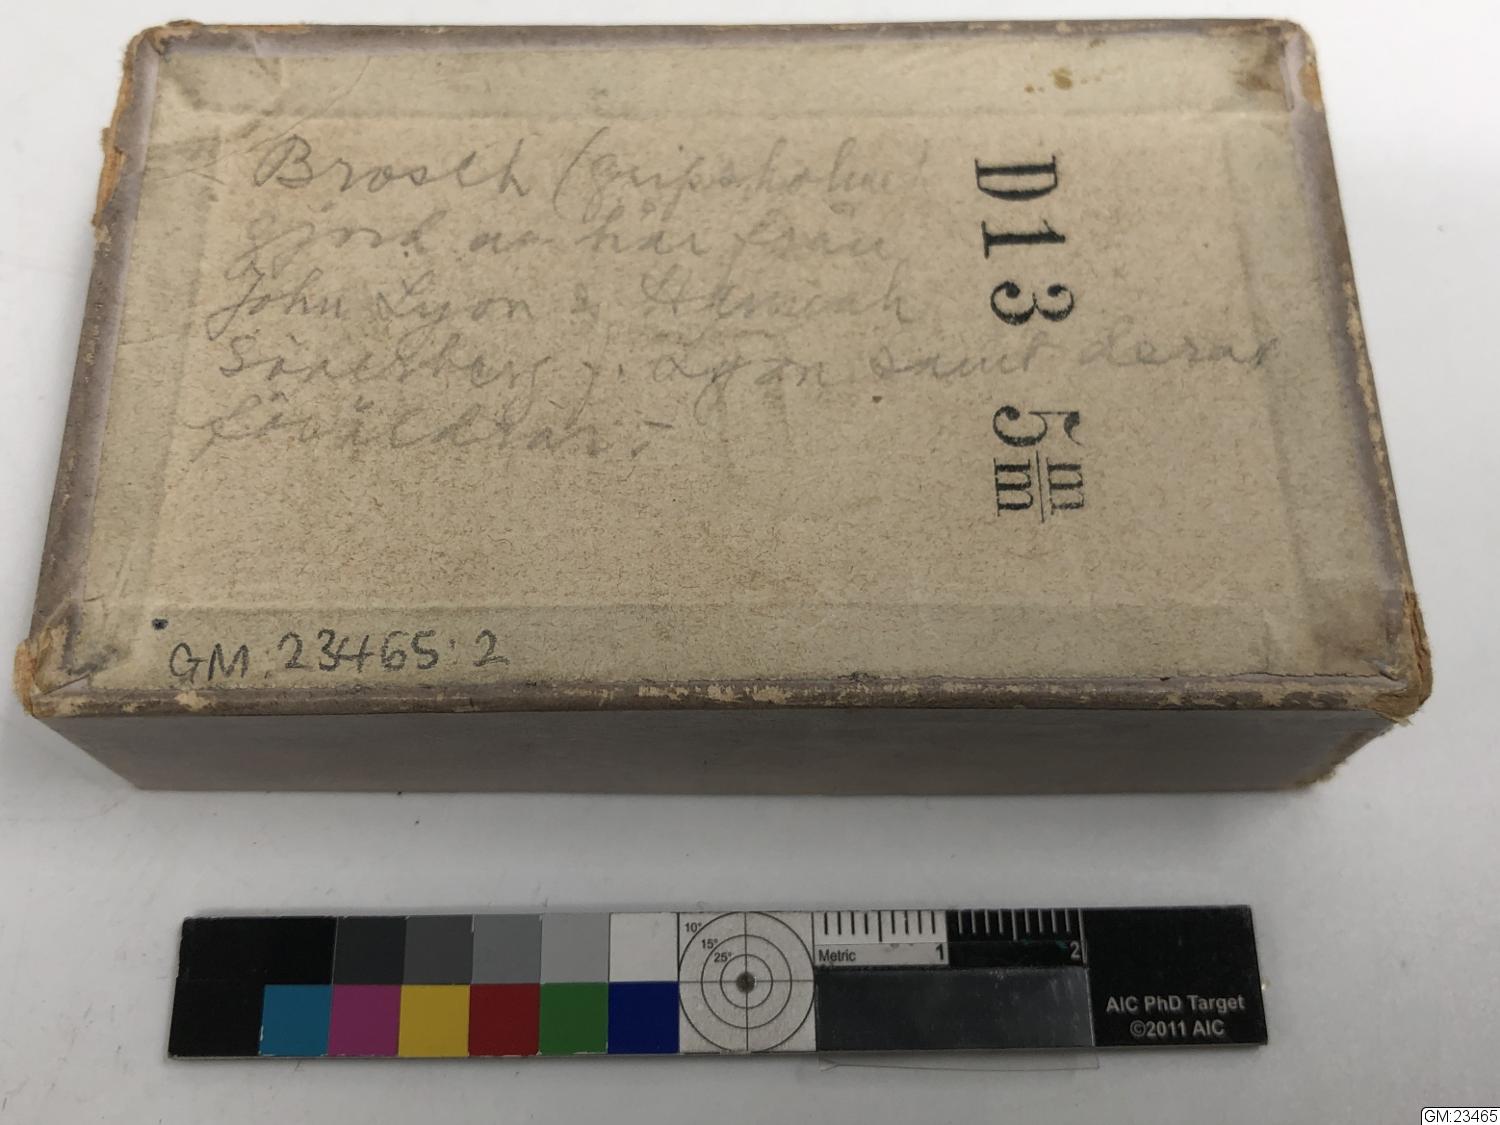 Brosch (gripsholm)
gjord av hår från
John Lyon & Hannah
Söderberg g. Lyon samt deras
föräldrar.
D13 5 m/m
GM:23465:2
10°
15°
25°
Metric 1 2
AIC PhD Target
©2011 AIC
GM:23465